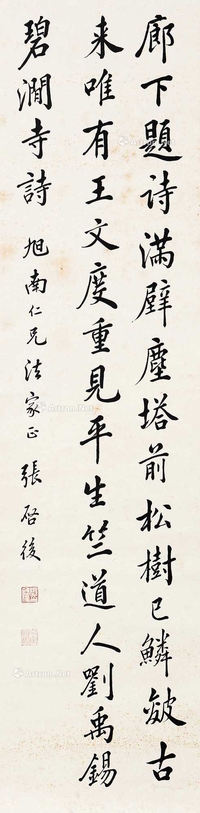 廊下題詩滿壁塵塔前松樹已鱗皴古
来唯有王文度重見平生竺道人劉禹錫
碧澗寺詩 旭南仁兄法家正 張啓後